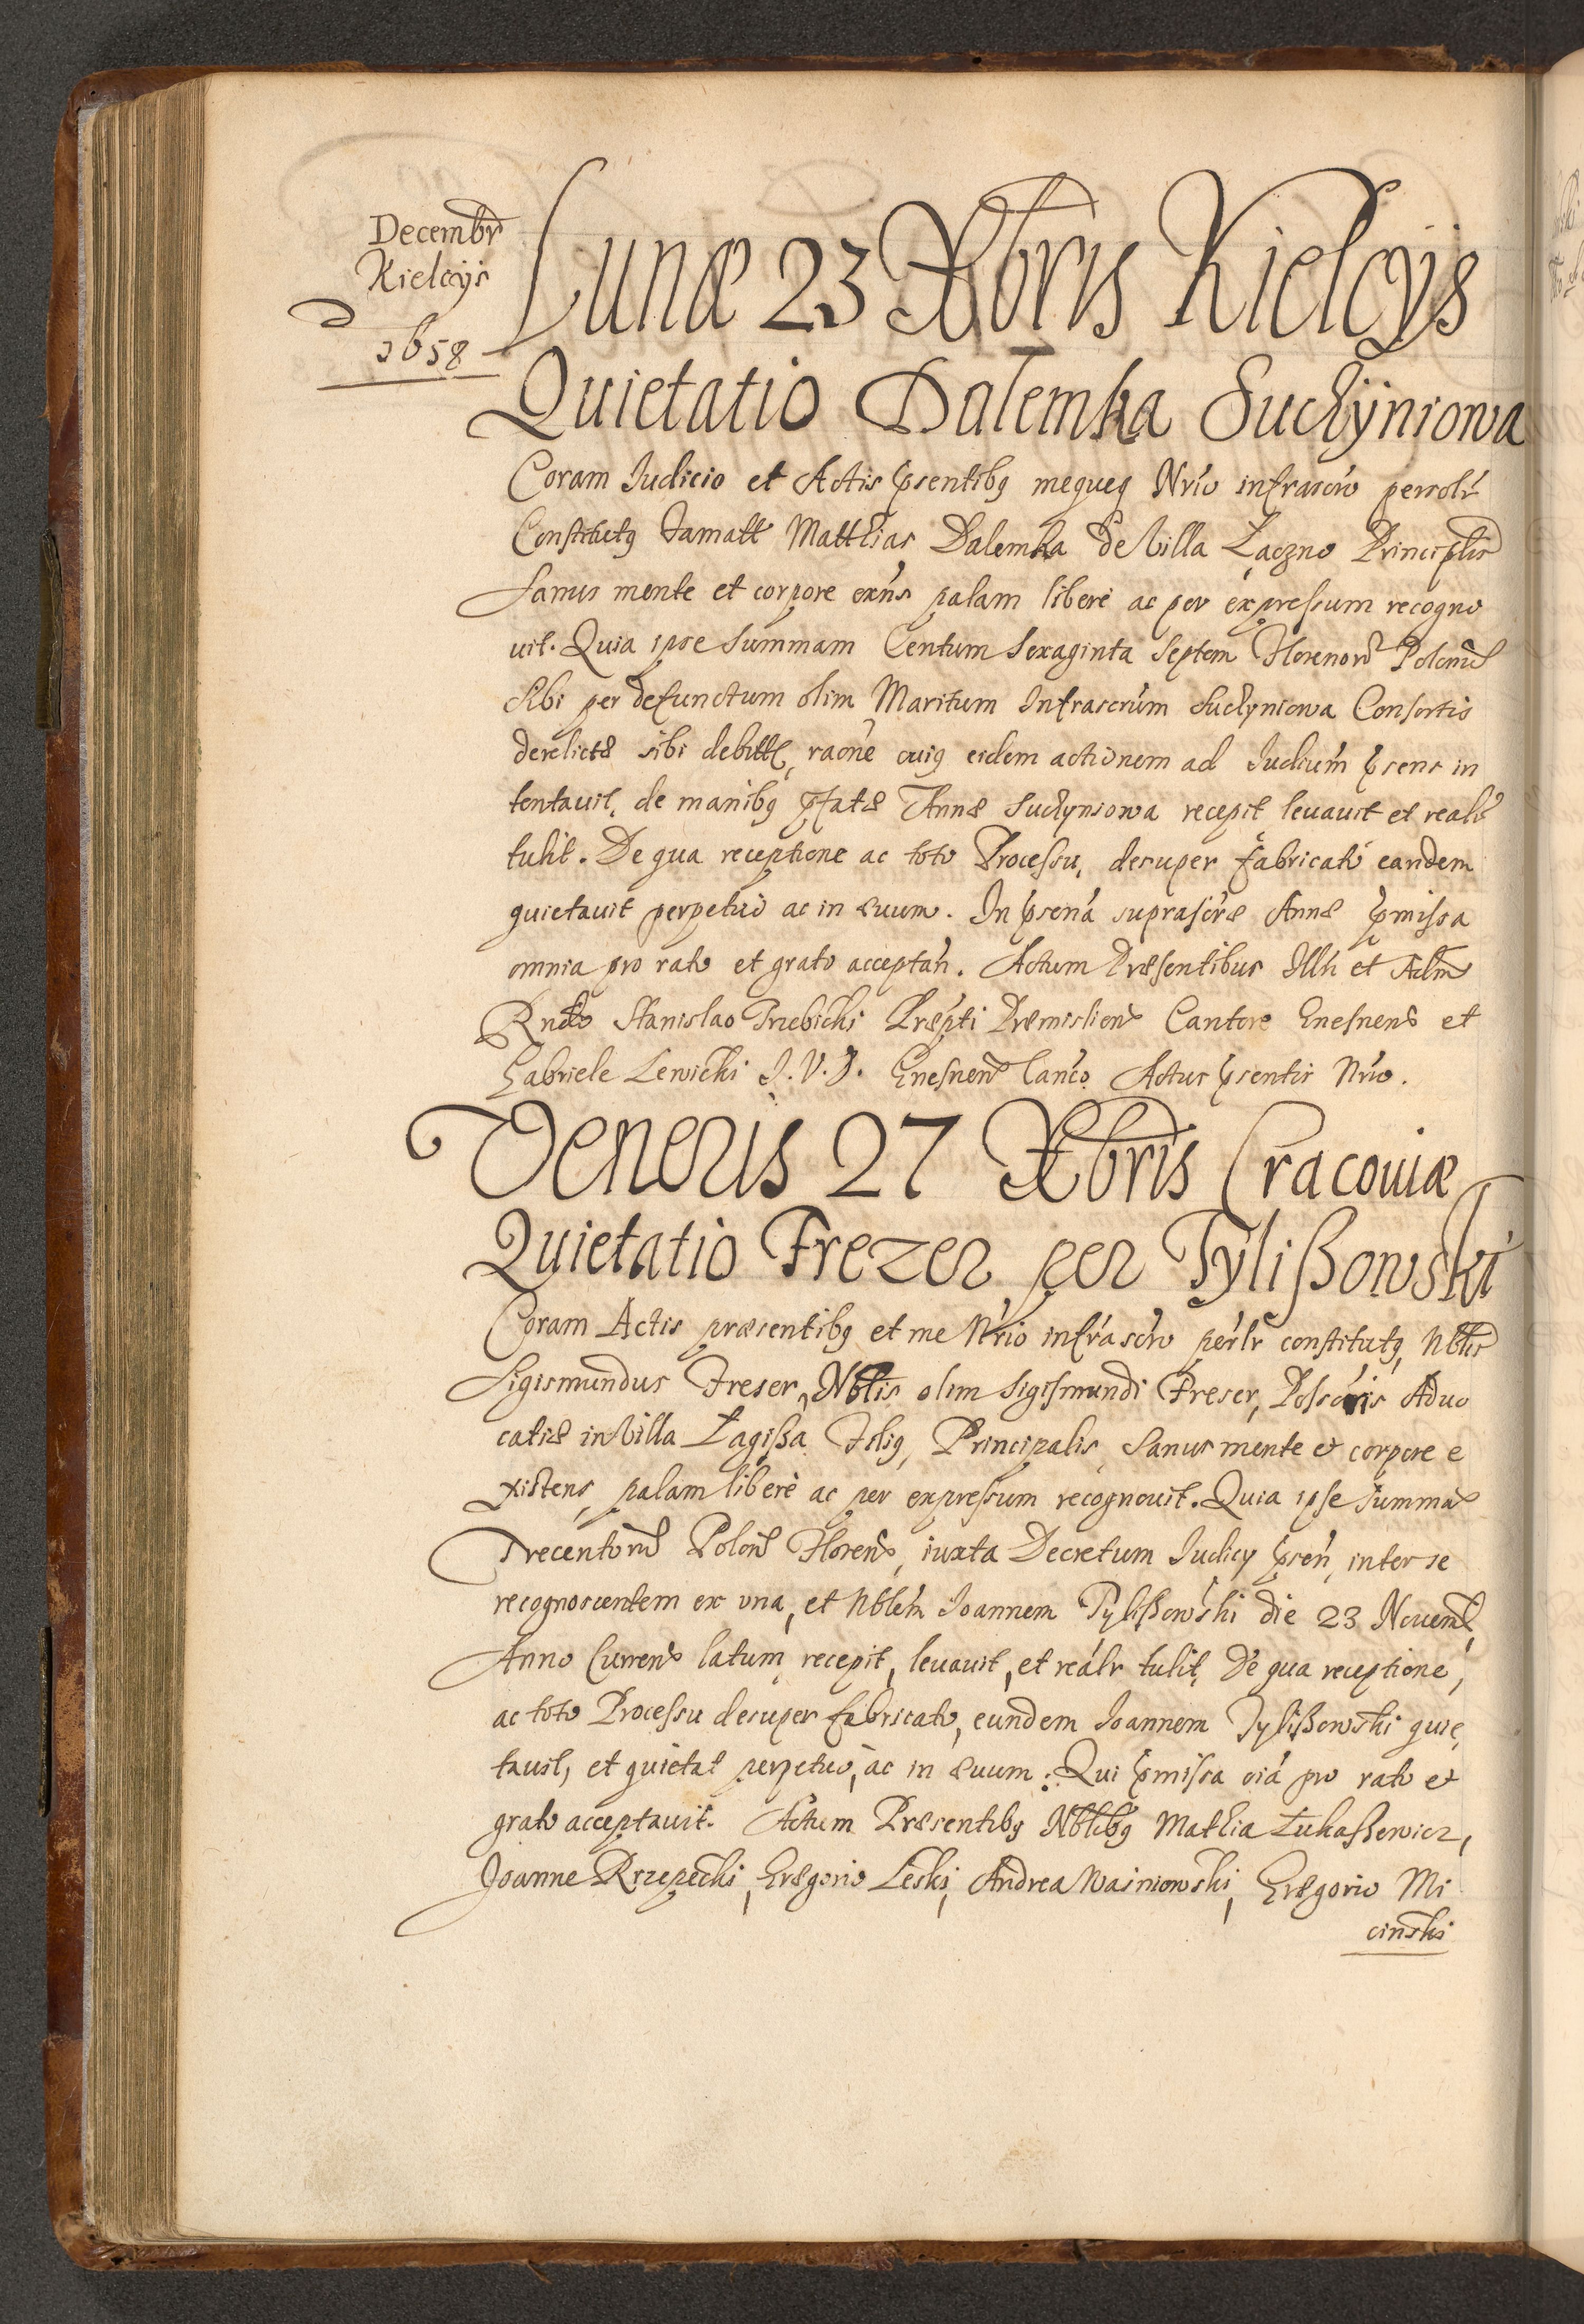 Decembr
Kielcijs
1658
Lunæ 23 Xbris Kielcijs
Quietatio Dalemka Suchÿniowa
Coram Iudicio et Actis psentibq mequeq Nrio infrascro persolr
Constitutq Famatt Matthias Dalemka de Villa Łączno Principlis
Sanus mente et corpore exns palam libere ac per expressum recogno
uit. Quia ipse Summam Centum Sexaginta Septem Florenor Polonl
sibi per defunctum olim Maritum Infrascrum Suchyniowa Consortis
derelictæ sibi debitt, raone cuiq eidem actionem ad Iudium psens in
tentauit, de manibq pfatæ Annæ Suchyniowa recepit leuauit et realr
tulit. De qua receptione ac toto Processu, desuper fabricato eandem
quietauit perpetuo ac in æuum. In psena suprascræ Annæ pmissa
omnia pro rato et grato acceptan. Actum Præsentibus Illri et Adm
Rndo Stanislao Trzebicki Præpti Præmislien Cantore Gnesnen et
Gabriele Lewicki I. V. D. Gnesnen Canco Actus psentis Nrio.
Veneris 27 Xbris Cracouiæ
Quietatio Frezer per Tÿlißowski
Coram Actis præsentibq et me Nrio infrascro perlr constitutq Nblis
Sigismundus Freser, Nblis olim Sigismundi Freser, Possoris Aduo
catiæ in Villa Łagißa Filiq, Principalis, Sanus mente et corpore e
xistens, palam libere ac per expressum recognouit. Quia ipse Summa
Trecentorū Polonl Floren, iuxta Decretum Iudicy psen, inter se
recognoscentem ex vna, et Nblem Ioannem Tylißowski die 23 Nouembr,
Anno Curren latum recepit, leuauit, et realr tulit, De qua receptione,
ac toto Processu desuper fabricato, eundem Ioannem Tylißowski quie,
tauit, et quietat perpetuo, ac in æuum. Qui pmissa oia pro rato et
grato acceptauit. Actum Præsentibq Nblibq Mathia Łukaßewicz,
Joanne Rzepecki, Grægorio Leski, Andrea Wainiowski, Grægorio Mi
cinski